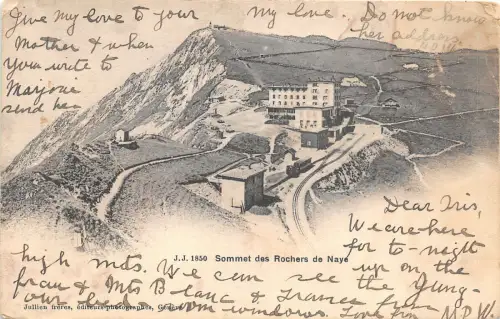 Give my love to your
Mother & when
you write to
Marjorie
send her
my love. Do not know
her address
now
J.J. 1850 Sommet des Rochers de Naye
Dear Iris,
We are here
for to-night
up on the
high mts. We can see the Jung-
frau & Mts Blanc & France from
our bed room windows. Love from M.P.W.
Jullien frères, éditeurs-photographes, Genève